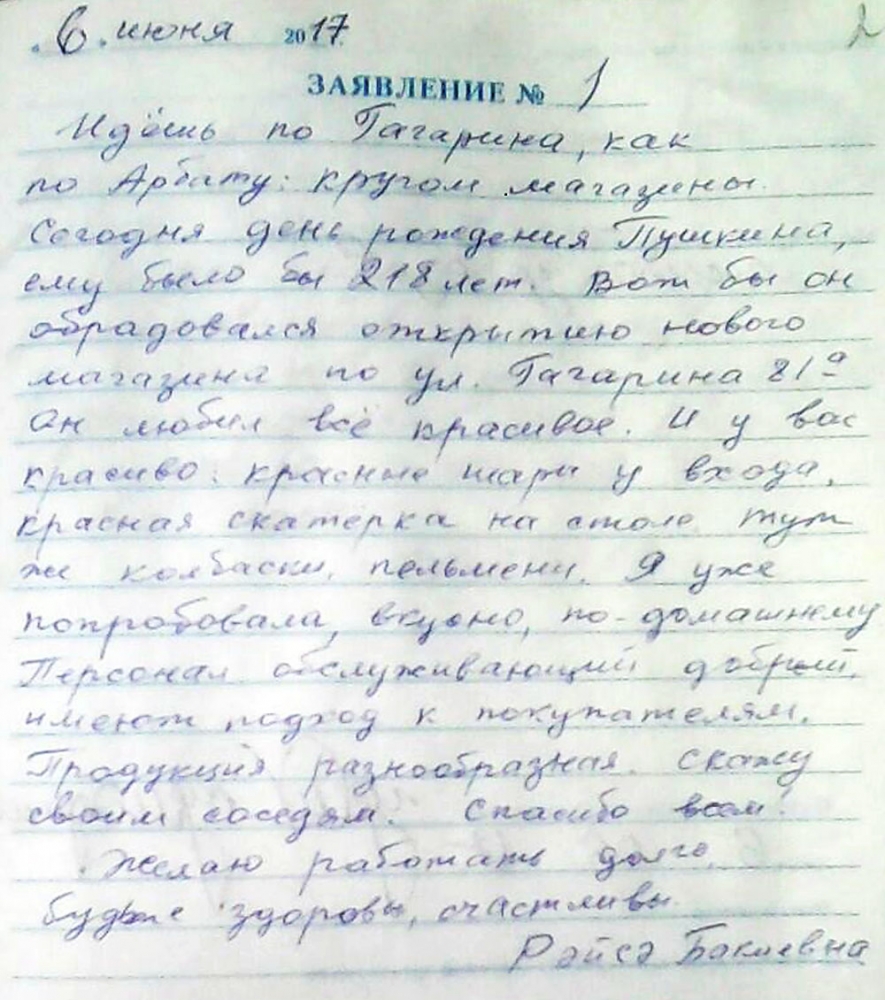 6 июня 2017 2
ЗАЯВЛЕНИЕ № 1
Идёшь по Гагарина, как
по Арбату: кругом магазины.
Сегодня день рождения Пушкина,
ему было бы 218 лет. Вот бы он
обрадовался открытию нового
магазина по ул. Гагарина 21а
Он любил всё красивое. И у вас
красиво: красные шары у входа,
красная скатёрка на столе, тут
же колбаски, пельмени. Я уже
попробовала, вкусно, по-домашнему
Персонал обслуживающий добрый,
имеют подход к покупателям.
Продукция разнообразная. Скажу
своим соседям. Спасибо всем!
Желаю работать долго,
будьте здоровы, счастливы.
Рәйсә Бакиевна